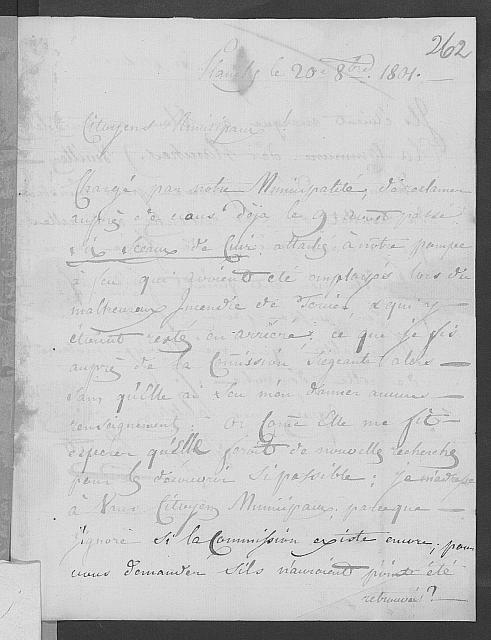 262
Planchs le 20e 8bre. 1801.
Citoyens Municipaux!
Chargé par notre Municipalité, de réclamer
auprès de vous déjà le 9 aoust passé
six sceaux de Cuir attachés à notre pompe
à feu qui avoient été employés lors du
malheureux Incendie de & qui y
étoient resté en arriéré; ce que je fis
auprès de la Comission siégeante alors
sans qu'Elle ai pu m'en donner aucuns
renseignement: Or Come Elle me fit
esperer qu'elle feroit de nouvelle recherches
pour les découvrir si possible; je m'adresse
à Vous Citoyens Municipaux, parceque
j'ignore si la Commission existe encore; pour
vous demander s'ils n'auroient point été
retrouvés?